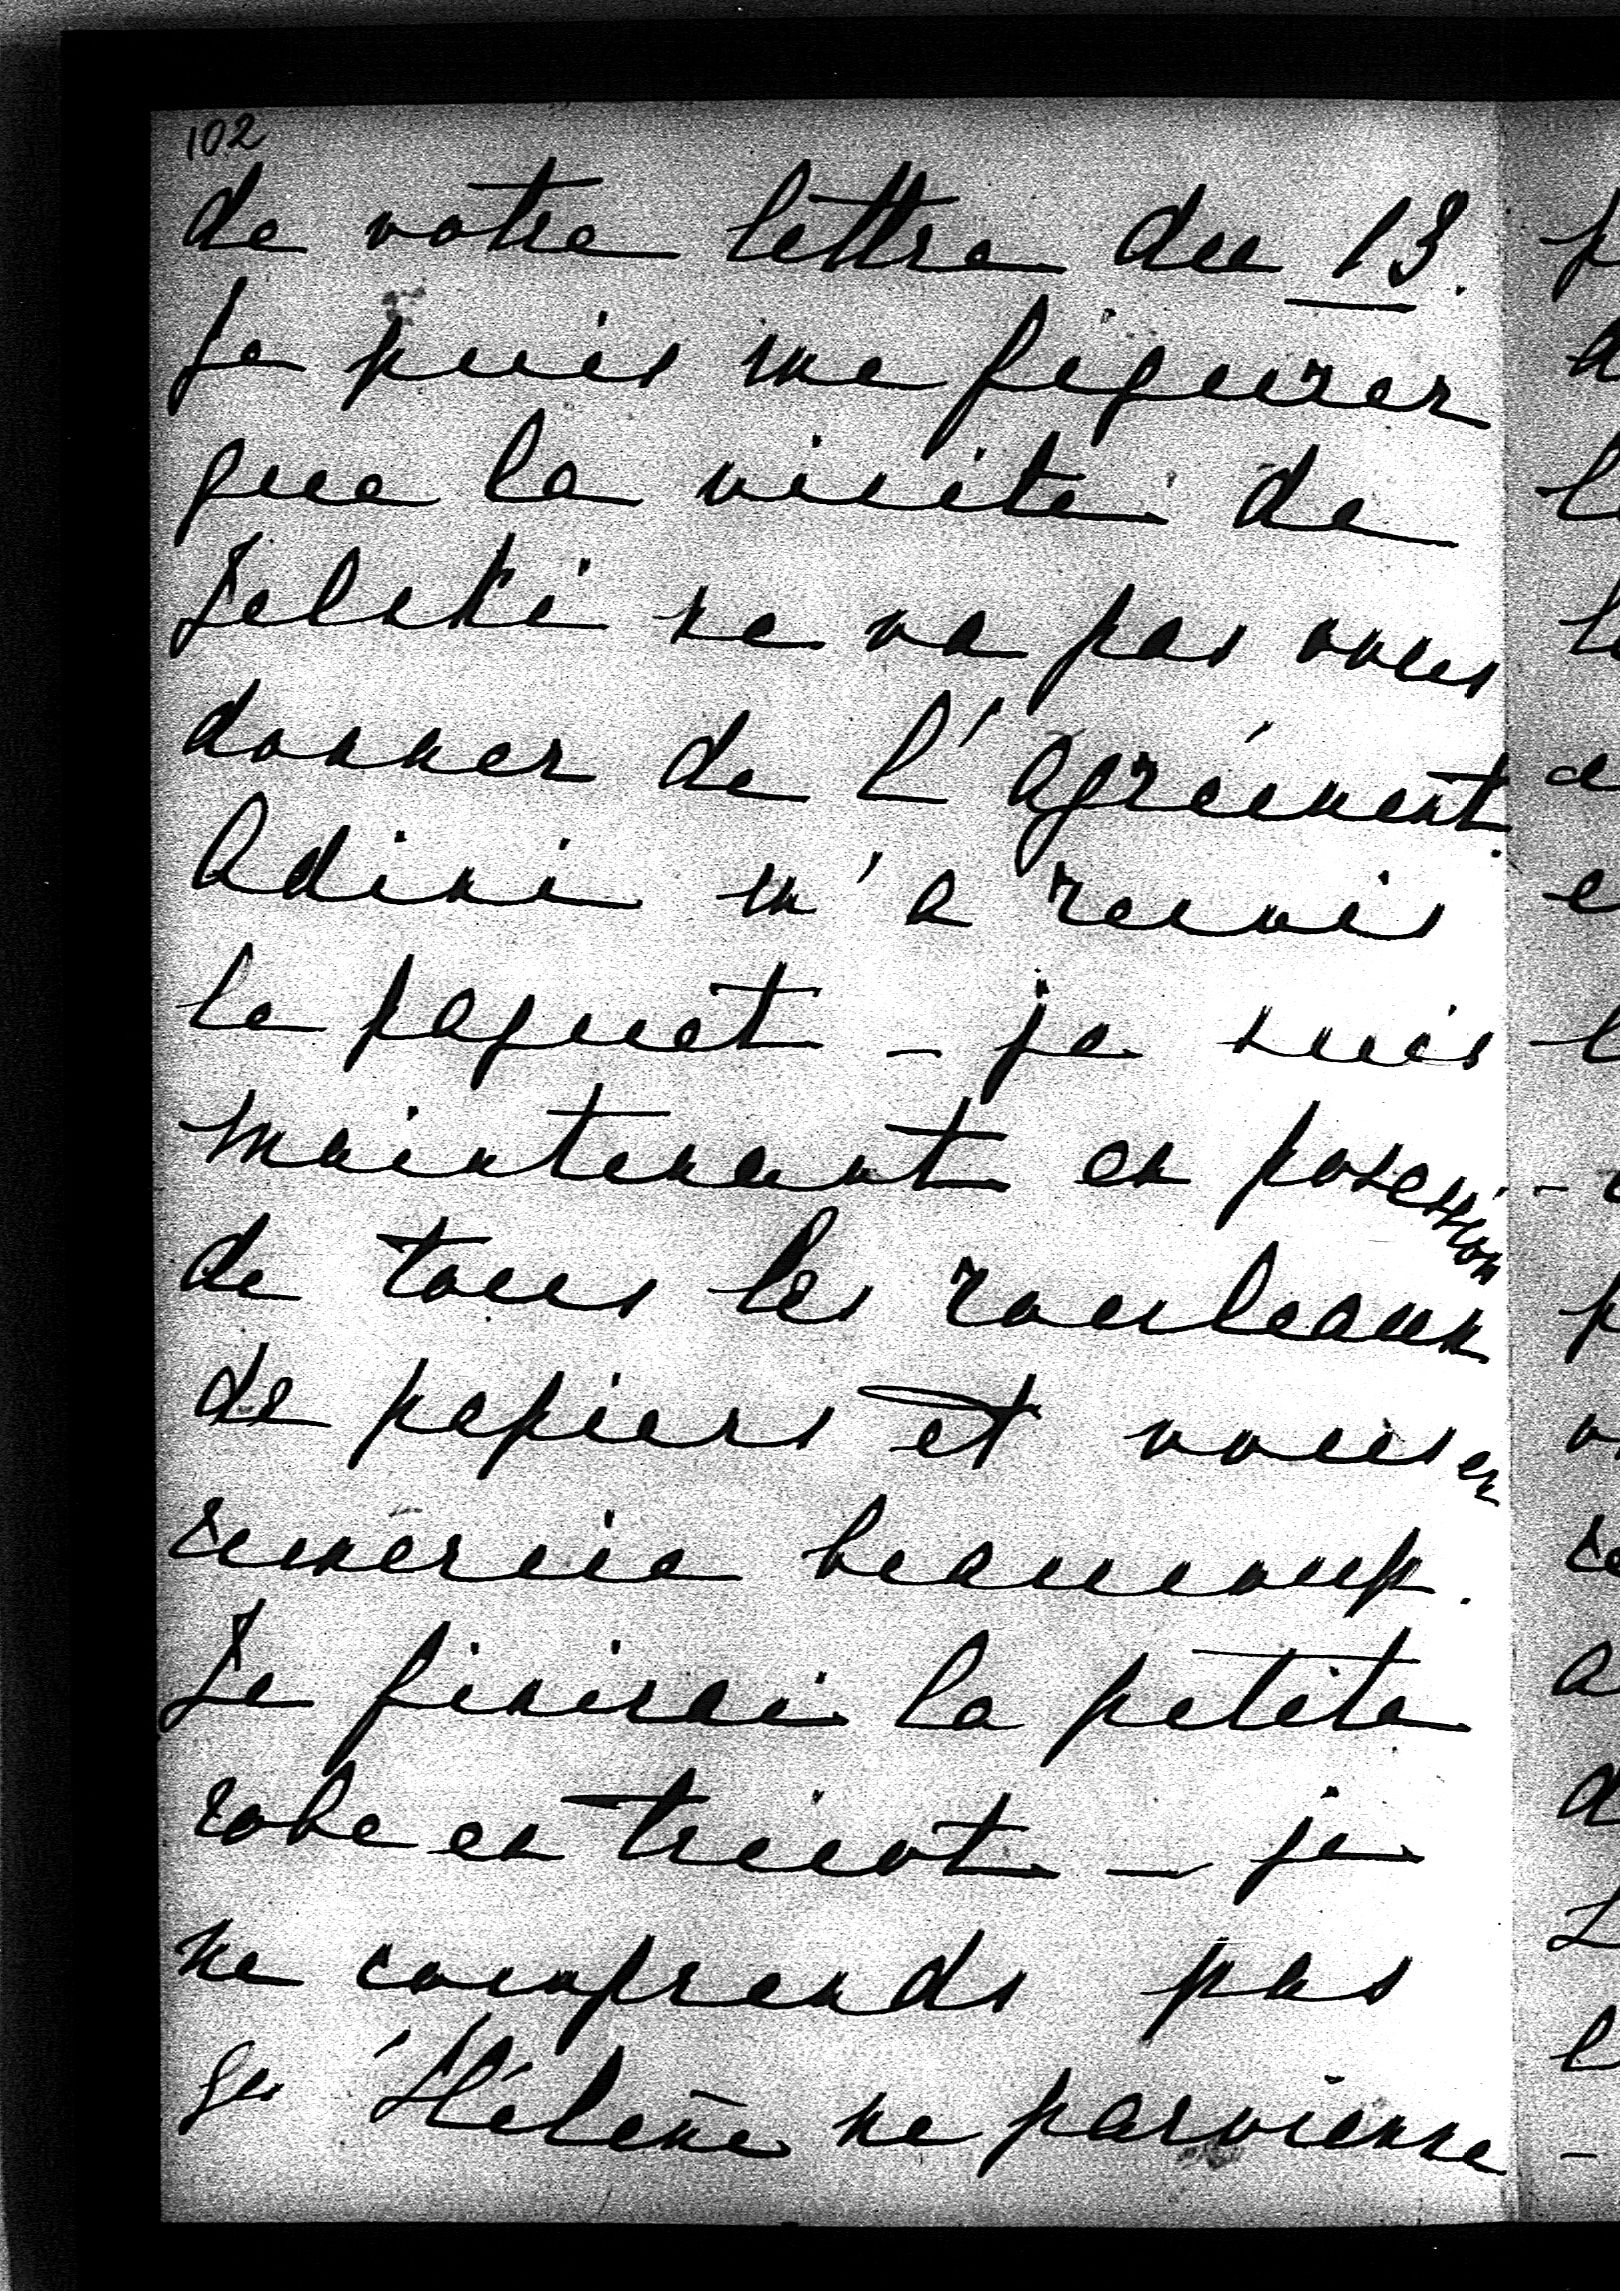 102
de votre lettre du 13.
Je puis me figurer
que la visite de
Jelski ne va pas vous
donner de l'agrément.
Adini m'a remis
le paquet - je suis
maintenant en posession
de tous les rouleaux
de papiers et vous en
remercie beaucoup.
Je finirai la petite
robe en tricot - je
ne comprends pas
qu'Hélène ne parvienne